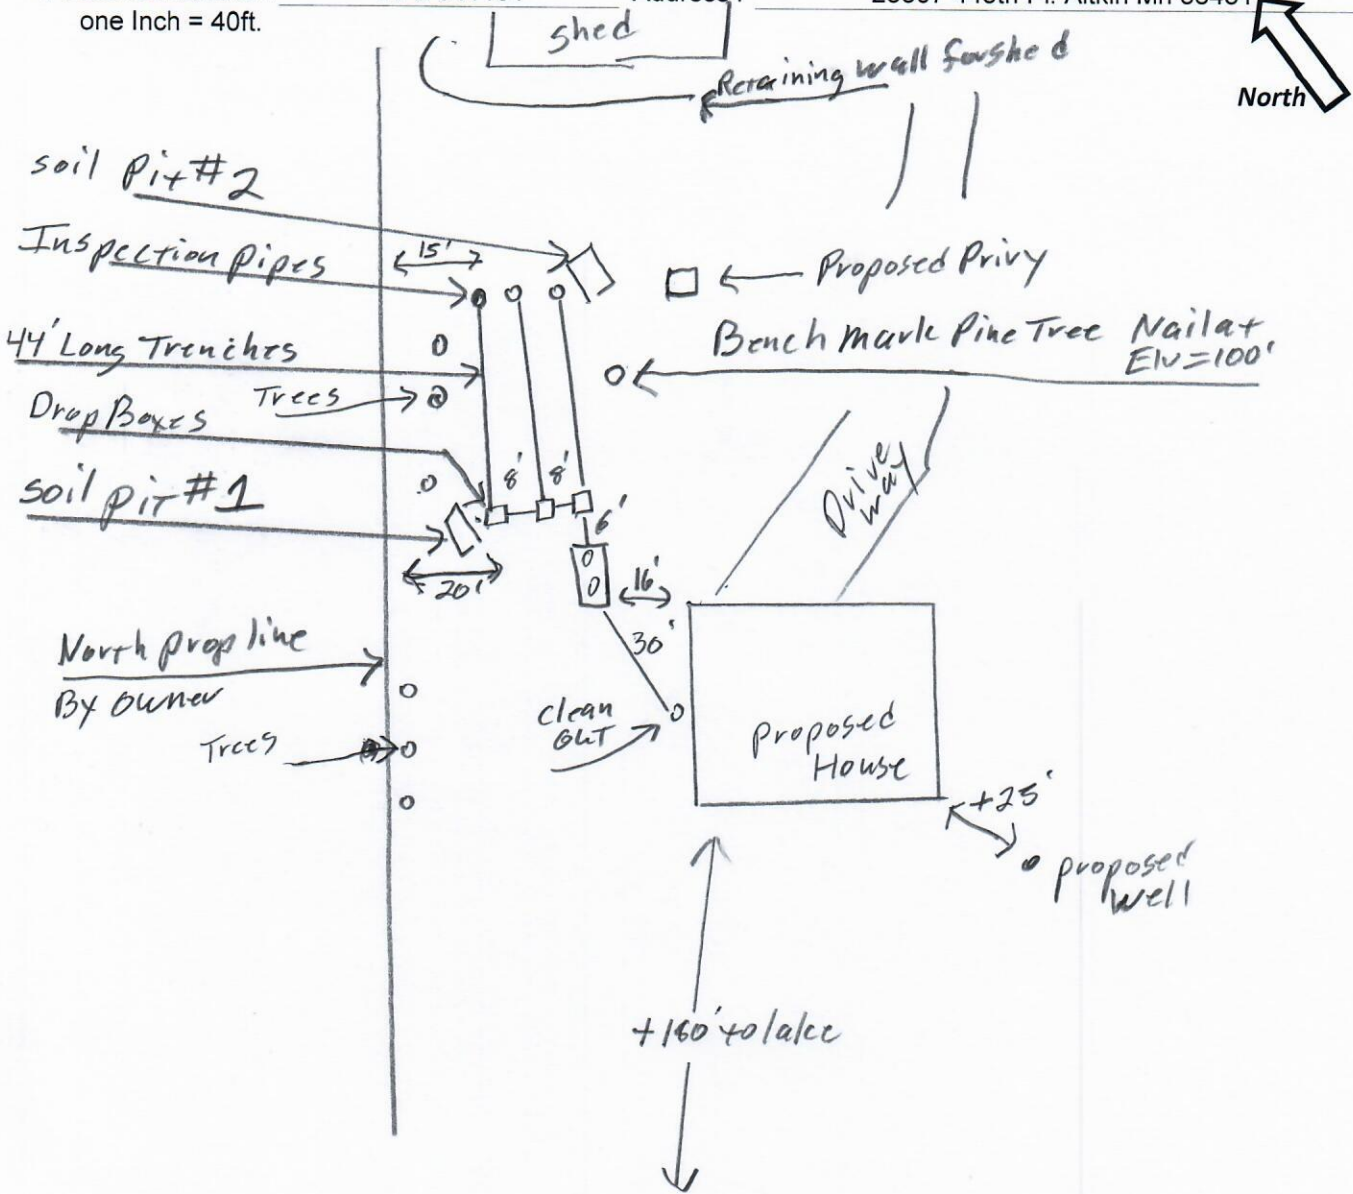 one Inch = 40ft.
shed
Retaining wall for shed
North
soil Pit #2
Inspection Pipes
15'
Proposed Privy
44' Long Trenches
Bench mark Pine Tree Nail at
Elv=100'
Trees
Drop Boxes
8'
8'
Drive
way
soil pit #1
6'
20'
16'
30'
North prop line
By owner
Clean
OUT
Trees
proposed
House
+25'
proposed
well
+160' to lake